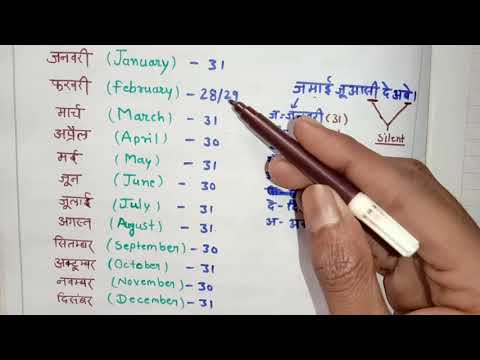 जनवरी (January) - 31
फरवरी (February) - 28/29
मार्च (March) - 31
अप्रैल (April) - 30
मई (May) - 31
जून (June) - 30
जुलाई (July) - 31
अगस्त (August) - 31
सितम्बर (September) - 30
अक्टूम्बर (October) - 31
नवम्बर (November) - 30
दिसंबर (December) - 31
जमाई जूआसी दे अबे।
ज - जनवरी (31)
Silent
दे -
अ -